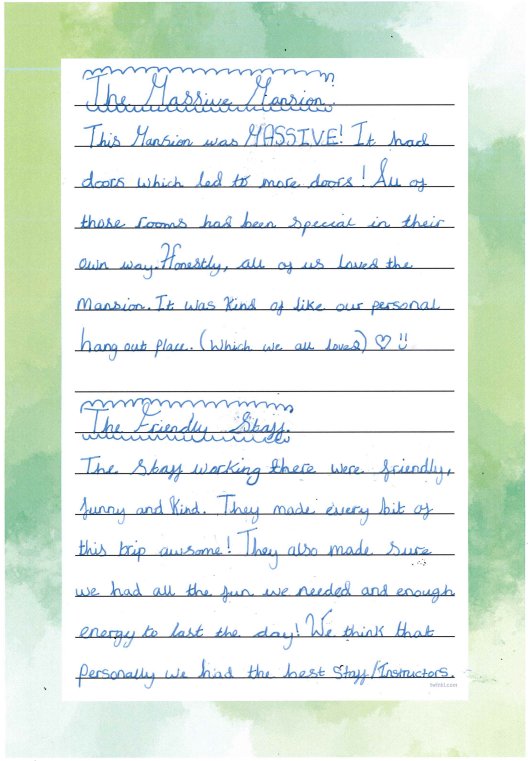 The Massive Mansion.
This Mansion was MASSIVE! It had
doors which led to more doors! All of
those rooms had been special in their
own way. Honestly, all of us loved the
Mansion. It was kind of like our personal
hang out place. (Which we all loved) ♡ !!
The Friendly Staff.
The staff working there were friendly,
funny and kind. They made every bit of
this trip awsome! They also made sure
we had all the fun we needed and enough
energy to last the day! We think that
personally we had the best staff/Instructors.
twinkl.com